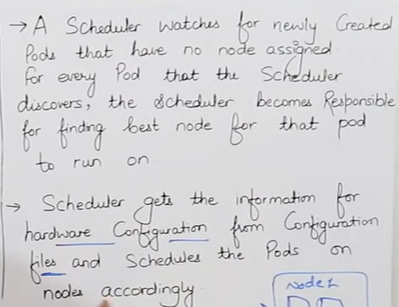 → A Scheduler watches for newly Created
Pods that have no node assigned.
for every Pod that the Scheduler
discovers, the Scheduler becomes Responsible
for finding best node for that pod
to run on
→ Scheduler gets the information for
hardware Configuration from Configuration
files and Schedules the Pods on
nodes accordingly.
Node 1